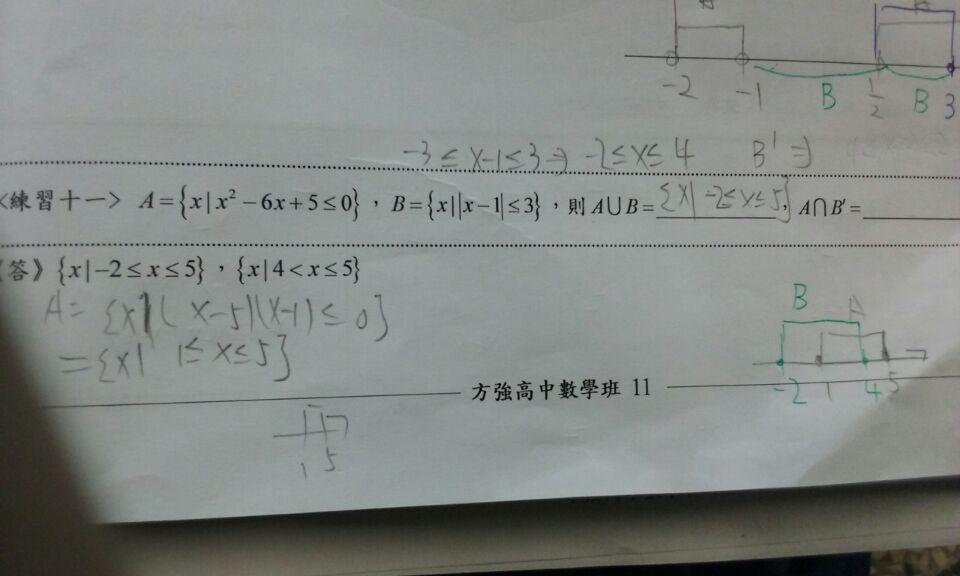 -2 -1 B 1/2 B 3
-3 ≤ x-1 ≤ 3 ⇒ -2 ≤ x ≤ 4 B' ⇒
<練習十一> A={x|x²-6x+5≤0}，B={x||x-1|≤3}，則 A∪B= {x|-2≤x≤5}，A∩B'=
《答》{x|-2≤x≤5}，{x|4<x≤5}
A= {x|(x-5)(x-1)≤0}
= {x| 1≤x≤5}
B A
-2 1 4 5
方強高中數學班 11
1 5